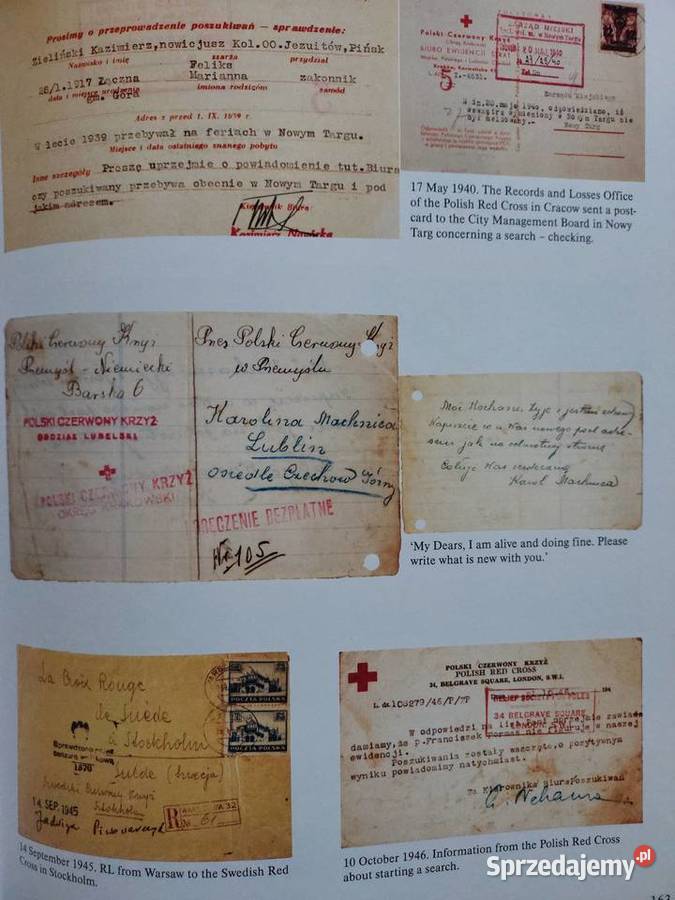 Prosimy o przeprowadzenie poszukiwań — sprawdzenie:
Zieliński Kazimierz, nowicjusz Kol.OO.Jezuitów, Pińsk
Nazwisko i imię szarża przydział
Feliks
26/1.1917 Łączna Marianna zakonnik
data i miejsce urodzenia imiona rodziców zawód
gm. Góra
Adres z przed 1. IX. 1939 r.
W lecie 1939 przebywał na feriach w Nowym Targu.
Miejsce i data ostatniego znanego pobytu
Inne szczegóły Proszę uprzejmie o powiadomienie tut.Biura
czy poszukiwany przebywa obecnie w Nowym Targu i pod
jakim adresem.
Kierownik Biura:
Kazimierz
Polski Czerwony Krzyż
BIURO EWIDENCJI
ZARZĄD MIEJSKI
w Nowym Targu
Zarządu Miejskiego
W dn.20.maja 1940. odpowiedziano, iż
wskutek wymieniony w Nowym Targu nie
był meldowany.
Nowy Targ
17 May 1940. The Records and Losses Office
of the Polish Red Cross in Cracow sent a post-
card to the City Management Board in Nowy
Targ concerning a search – checking.
Polski Czerwony Krzyż
Przemyśl - Niemiecki
Barska 6
POLSKI CZERWONY KRZYŻ
ODDZIAŁ LUBELSKI
POLSKI CZERWONY KRZYŻ
OKRĘG KRAKOWSKI
Przez Polski Czerwony Krzyż
w Przemyślu
Karolina Machnica
Lublin
osiedle Czechów Górny
DORĘCZENIE BEZPŁATNE
Nr 105
Moi Kochani, żyję i jestem zdrowy
Napiszcie co u Was nowego pod adre-
sem jak na odwrotnej stronie
Całuję Was serdecznie
Karol Machnica
'My Dears, I am alive and doing fine. Please
write what is new with you.'
La Croix Rouge
de Suède
à Stockholm
Suède (Szwecja)
Szwedzki Czerwony Krzyż
Stockholm
Sprawdzono przez
cenzurę wojskową
1870
14 SEP. 1945
Jadwiga
POCZTA POLSKA
POCZTA POLSKA
R
WARSZAWA 32
No 61
14 September 1945. RL from Warsaw to the Swedish Red
Cross in Stockholm.
POLSKI CZERWONY KRZYŻ
POLISH RED CROSS
34, BELGRAVE SQUARE, LONDON, S.W.1.
L. dz 108279/46/P/TP
194
RELIEF SOCIETY FOR POLES
34 BELGRAVE SQUARE
W odpowiedzi na list Pani uprzejmie zawia
damiamy, że p.Franciszek nie figuruje w naszej
ewidencji.
Poszukiwania zostały wszczęte, o pozytywnym
wyniku powiadomimy natychmiast.
Za Kierownika Biura Poszukiwań
10 October 1946. Information from the Polish Red Cross
about starting a search.
Sprzedajemy.pl
163